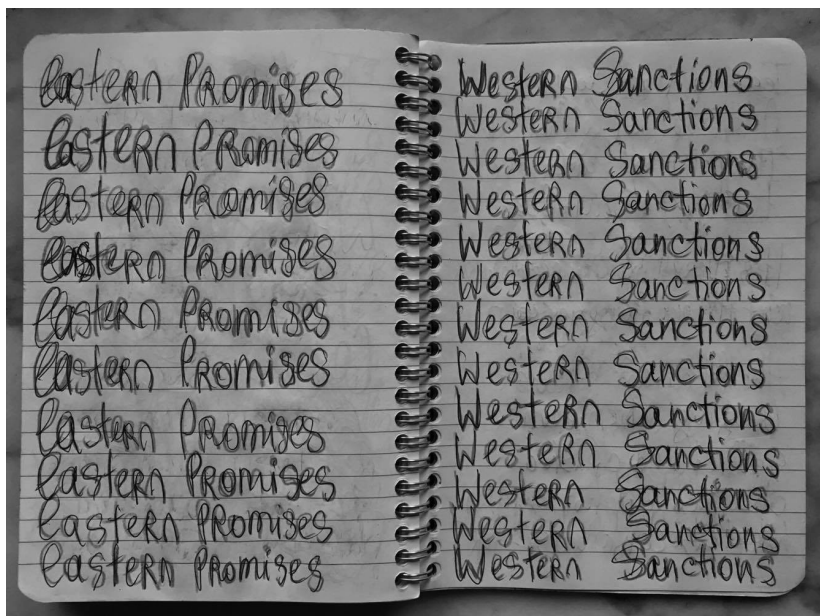 Eastern Promises
Eastern Promises
Eastern Promises
Eastern Promises
Eastern Promises
Eastern Promises
Eastern Promises
Eastern Promises
Eastern Promises
Eastern Promises
Western Sanctions
Western Sanctions
Western Sanctions
Western Sanctions
Western Sanctions
Western Sanctions
Western Sanctions
Western Sanctions
Western Sanctions
Western Sanctions
Western Sanctions
Western Sanctions
Western Sanctions